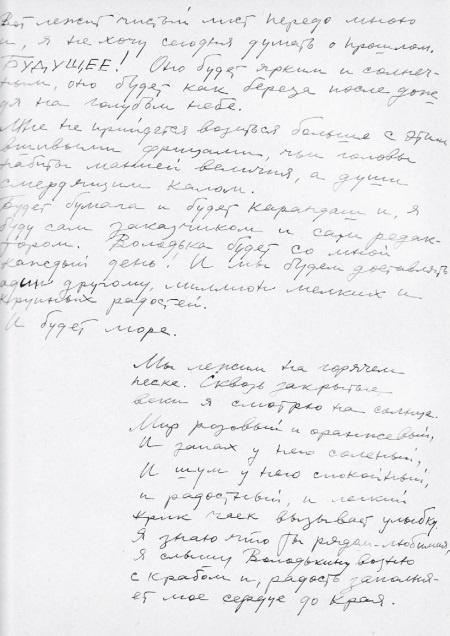 Вот лежит чистый лист передо мною
и, я не хочу сегодня думать о прошлом.
БУДУЩЕЕ! Оно будет ярким и солнеч-
ным, оно будет как береза после дож-
дя на голубом небе.
Мне не прийдется возиться больше с этими
вшивыми фрицами, чьи головы
набиты манией величия, а души
смердящим калом.
Будет бумага и будет карандаш и, я
буду сам заказчиком и сам редак-
тором. Володька будет со мной
каждый день! И мы будем доставлять
один другому, миллион мелких и
крупных радостей.
И будет море.
Мы лежим на горячем
песке. Сквозь закрытые
веки я смотрю на солнце.
Мир розовый и оранжевый,
И запах у него соленый,
И шум у него спокойный,
и радостный, и легкий
крик чаек вызывает улыбку.
Я знаю что ты рядом – любимая,
Я слышу Володькину возню
с крабом и, радость заполня-
ет мое сердце до края.